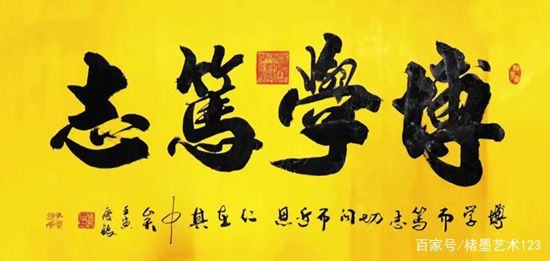 博學篤志
博学而篤志切问而近思 仁在其中矣
壬寅
百家号/楮墨艺术123